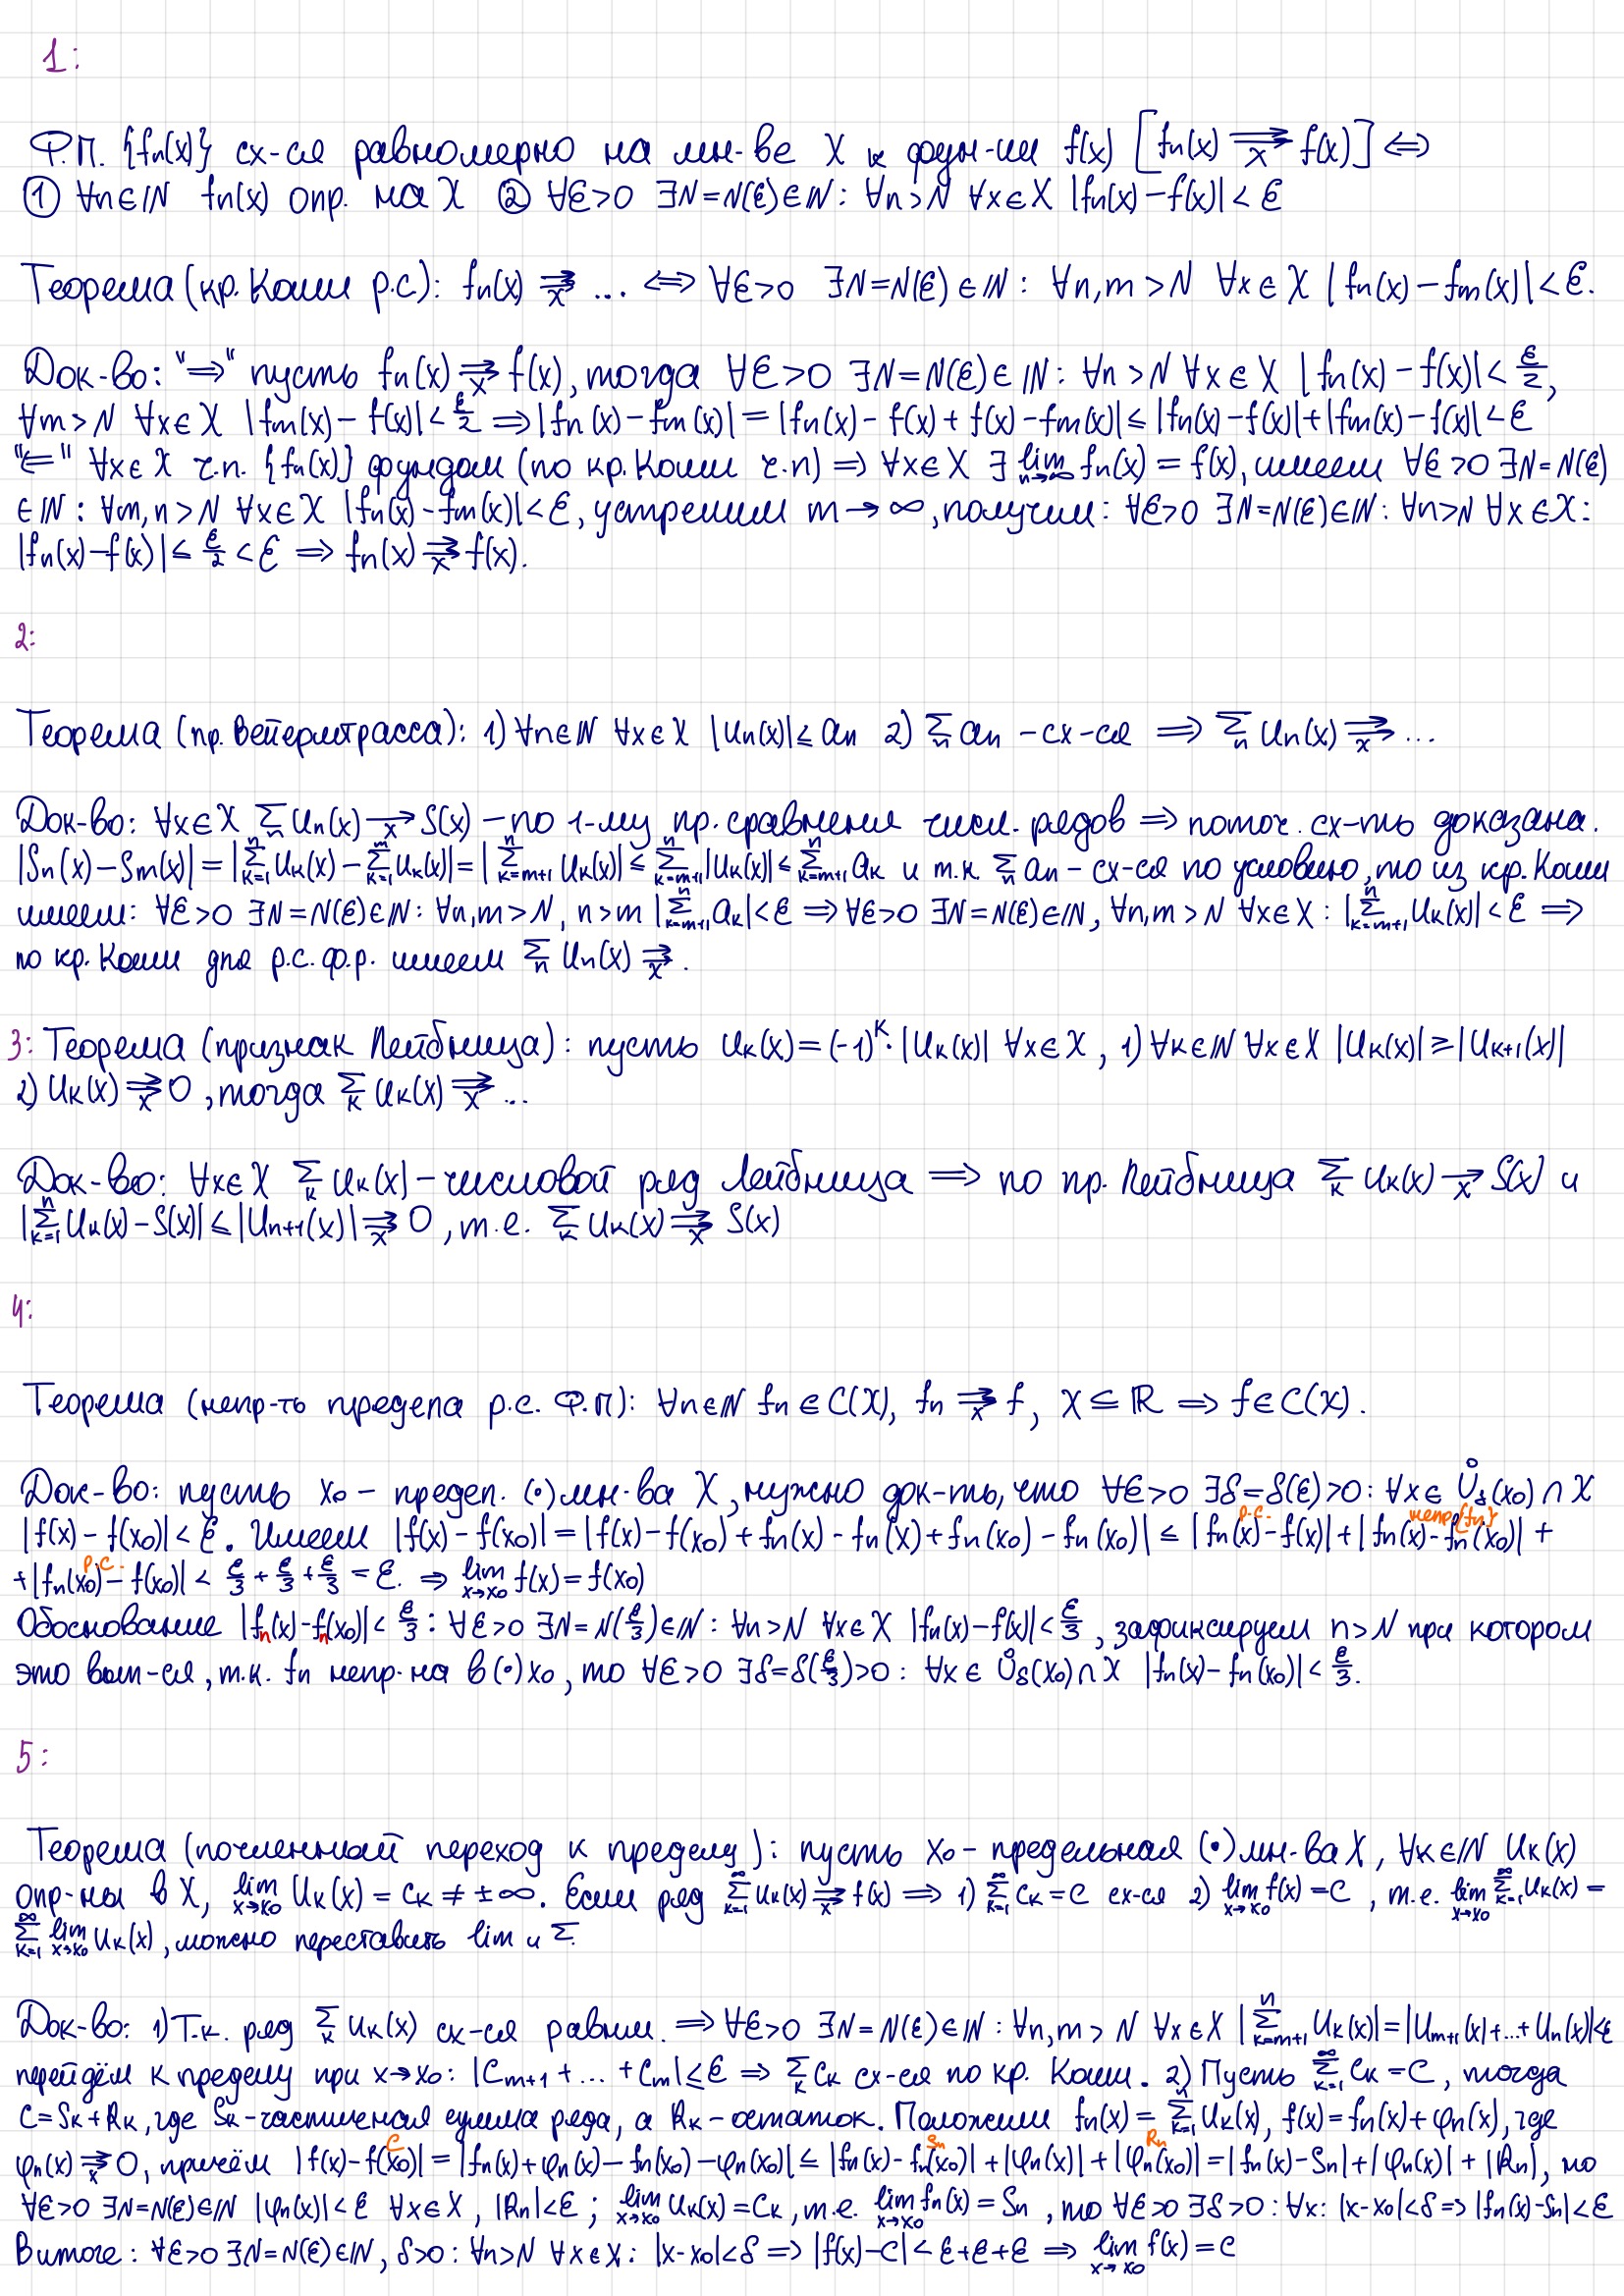 1:
Ф.П. {fn(x)} сх-ся равномерно на мн-ве X к функ-ии f(x) [fn(x) ⇉_X f(x)] ⟺
① ∀n∈ℕ fn(x) опр. на X ② ∀ε>0 ∃N=N(ε)∈ℕ: ∀n>N ∀x∈X |fn(x)−f(x)|<ε
Теорема (кр. Коши р.с): fn(x) ⇉_X ... ⟺ ∀ε>0 ∃N=N(ε)∈ℕ: ∀n,m>N ∀x∈X |fn(x)−fm(x)|<ε.
Док-во: "⇒" пусть fn(x) ⇉_X f(x), тогда ∀ε>0 ∃N=N(ε)∈ℕ: ∀n>N ∀x∈X |fn(x)−f(x)|<ε/2,
∀m>N ∀x∈X |fm(x)−f(x)|<ε/2 ⇒ |fn(x)−fm(x)|=|fn(x)−f(x)+f(x)−fm(x)|≤|fn(x)−f(x)|+|fm(x)−f(x)|<ε
"⇐" ∀x∈X ч.п. {fn(x)} фундам (по кр. Коши ч.п) ⇒ ∀x∈X ∃ lim_{n→∞} fn(x)=f(x), имеем ∀ε>0 ∃N=N(ε)
∈ℕ: ∀m,n>N ∀x∈X |fn(x)−fm(x)|<ε, устремим m→∞, получим: ∀ε>0 ∃N=N(ε)∈ℕ: ∀n>N ∀x∈X:
|fn(x)−f(x)|≤ε/2<ε ⇒ fn(x) ⇉_X f(x).
2:
Теорема (пр. Вейерштрасса): 1) ∀n∈ℕ ∀x∈X |Un(x)|≤an 2) Σ_n an − сх-ся ⇒ Σ_n Un(x) ⇉_X ...
Док-во: ∀x∈X Σ_n Un(x) →_X S(x) − по 1-му пр. сравнения числ. рядов ⇒ поточ. сх-ть доказана.
|Sn(x)−Sm(x)|=|Σ_{k=1}^n Uk(x)−Σ_{k=1}^m Uk(x)|=|Σ_{k=m+1}^n Uk(x)|≤Σ_{k=m+1}^n |Uk(x)|≤Σ_{k=m+1}^n ak и т.к. Σ_n an − сх-ся по условию, то из кр. Коши
имеем: ∀ε>0 ∃N=N(ε)∈ℕ: ∀n,m>N, n>m |Σ_{k=m+1}^n ak|<ε ⇒ ∀ε>0 ∃N=N(ε)∈ℕ, ∀n,m>N ∀x∈X: |Σ_{k=m+1}^n Uk(x)|<ε ⇒
по кр. Коши для р.с. ф.р. имеем Σ_n Un(x) ⇉_X.
3: Теорема (признак Лейбница): пусть Uk(x)=(-1)^k·|Uk(x)| ∀x∈X, 1) ∀k∈ℕ ∀x∈X |Uk(x)|≥|Uk+1(x)|
2) Uk(x) ⇉_X 0, тогда Σ_k Uk(x) ⇉_X ...
Док-во: ∀x∈X Σ_k Uk(x) − числовой ряд Лейбница ⇒ по пр. Лейбница Σ_k Uk(x) →_X S(x) и
|Σ_{k=1}^n Uk(x)−S(x)|≤|Un+1(x)| ⇉_X 0, т.е. Σ_k Uk(x) ⇉_X S(x)
4:
Теорема (непр-ть предела р.с. Ф.П): ∀n∈ℕ fn∈C(X), fn ⇉_X f, X⊆ℝ ⇒ f∈C(X).
Док-во: пусть x₀ − предел. (•) мн-ва X, нужно док-ть, что ∀ε>0 ∃δ=δ(ε)>0: ∀x∈Ů_δ(x₀)∩X
|f(x)−f(x₀)|<ε. Имеем |f(x)−f(x₀)|=|f(x)−f(x₀)+fn(x)−fn(x)+fn(x₀)−fn(x₀)|≤|fn(x)−f(x)| р.с. +|fn(x)−fn(x₀)| непр{fn} +
+|fn(x₀)−f(x₀)| р.с. <ε/3+ε/3+ε/3=ε. ⇒ lim_{x→x₀} f(x)=f(x₀)
Обоснование |fn(x)−fn(x₀)|<ε/3: ∀ε>0 ∃N=N(ε/3)∈ℕ: ∀n>N ∀x∈X |fn(x)−f(x)|<ε/3, зафиксируем n>N при котором
это вып-ся, т.к. fn непр-на в (•) x₀, то ∀ε>0 ∃δ=δ(ε/3)>0: ∀x∈Ů_δ(x₀)∩X |fn(x)−fn(x₀)|<ε/3.
5:
Теорема (почленный переход к пределу): пусть x₀ − предельная (•) мн-ва X, ∀k∈ℕ Uk(x)
опр-ны в X, lim_{x→x₀} Uk(x)=Ck≠±∞. Если ряд Σ_{k=1}^∞ Uk(x) ⇉_X f(x) ⇒ 1) Σ_{k=1}^∞ Ck=C сх-ся 2) lim_{x→x₀} f(x)=C, т.е. lim_{x→x₀} Σ_{k=1}^∞ Uk(x)=
Σ_{k=1}^∞ lim_{x→x₀} Uk(x), можно переставить lim и Σ.
Док-во: 1) Т.к. ряд Σ_k Uk(x) сх-ся равном. ⇒ ∀ε>0 ∃N=N(ε)∈ℕ: ∀n,m>N ∀x∈X |Σ_{k=m+1}^n Uk(x)|=|Um+1(x)+...+Un(x)|<ε
перейдём к пределу при x→x₀: |Cm+1+...+Cm|≤ε ⇒ Σ_k Ck сх-ся по кр. Коши. 2) Пусть Σ_{k=1}^∞ Ck=C, тогда
C=Sk+Rk, где Sk−частичная сумма ряда, а Rk−остаток. Положим fn(x)=Σ_{k=1}^n Uk(x), f(x)=fn(x)+φn(x), где
φn(x) ⇉_X 0, причём |f(x)−f(x₀) C|=|fn(x)+φn(x)−fn(x₀)−φn(x₀)|≤|fn(x)−fn(x₀) Sn|+|φn(x)|+|φn(x₀) Rn|=|fn(x)−Sn|+|φn(x)|+|Rn|, но
∀ε>0 ∃N=N(ε)∈ℕ |φn(x)|<ε ∀x∈X, |Rn|<ε; lim_{x→x₀} Uk(x)=Ck, т.е. lim_{x→x₀} fn(x)=Sn, то ∀ε>0 ∃δ>0: ∀x: |x−x₀|<δ ⇒ |fn(x)−Sn|<ε
В итоге: ∀ε>0 ∃N=N(ε)∈ℕ, δ>0: ∀n>N ∀x∈X: |x−x₀|<δ ⇒ |f(x)−C|<ε+ε+ε ⇒ lim_{x→x₀} f(x)=C